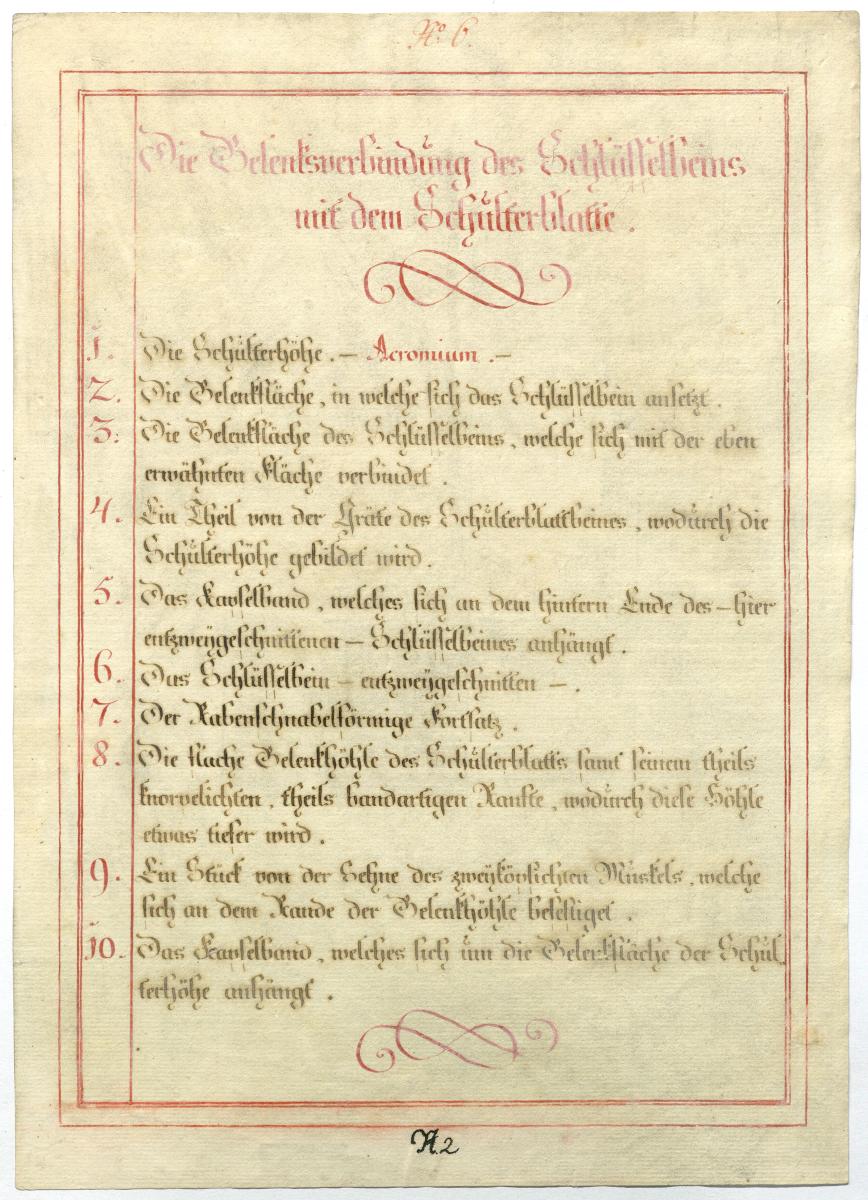 No 6.
Die Gelenksverbindung des Schlüsselbeins
mit dem Schulterblatte.
1. Die Schulterhöhe. – Acromium. –
2. Die Gelenkfläche, in welche sich das Schlüsselbein ansetzt.
3. Die Gelenkfläche des Schlüsselbeins, welche sich mit der eben
erwähnten Fläche verbindet.
4. Ein Theil von der Gräte des Schulterblattbeines, wodurch die
Schulterhöhe gebildet wird.
5. Das Kapselband, welches sich an dem hintern Ende des – hier
entzweygeschnittenen – Schlüsselbeines anhängt.
6. Das Schlüsselbein – entzweygeschnitten –.
7. Der Rabenschnabelförmige Fortsatz.
8. Die flache Gelenkhöhle des Schulterblatts samt seinem theils
knorpelichten, theils bandartigen Ranfte, wodurch diese Höhle
etwas tiefer wird.
9. Ein Stück von der Sehne des zweyköpfichten Muskels, welche
sich an dem Rande der Gelenkhöhle befestiget.
10. Das Kapselband, welches sich um die Gelenkfläche der Schul
terhöhe anhängt.
N. 2